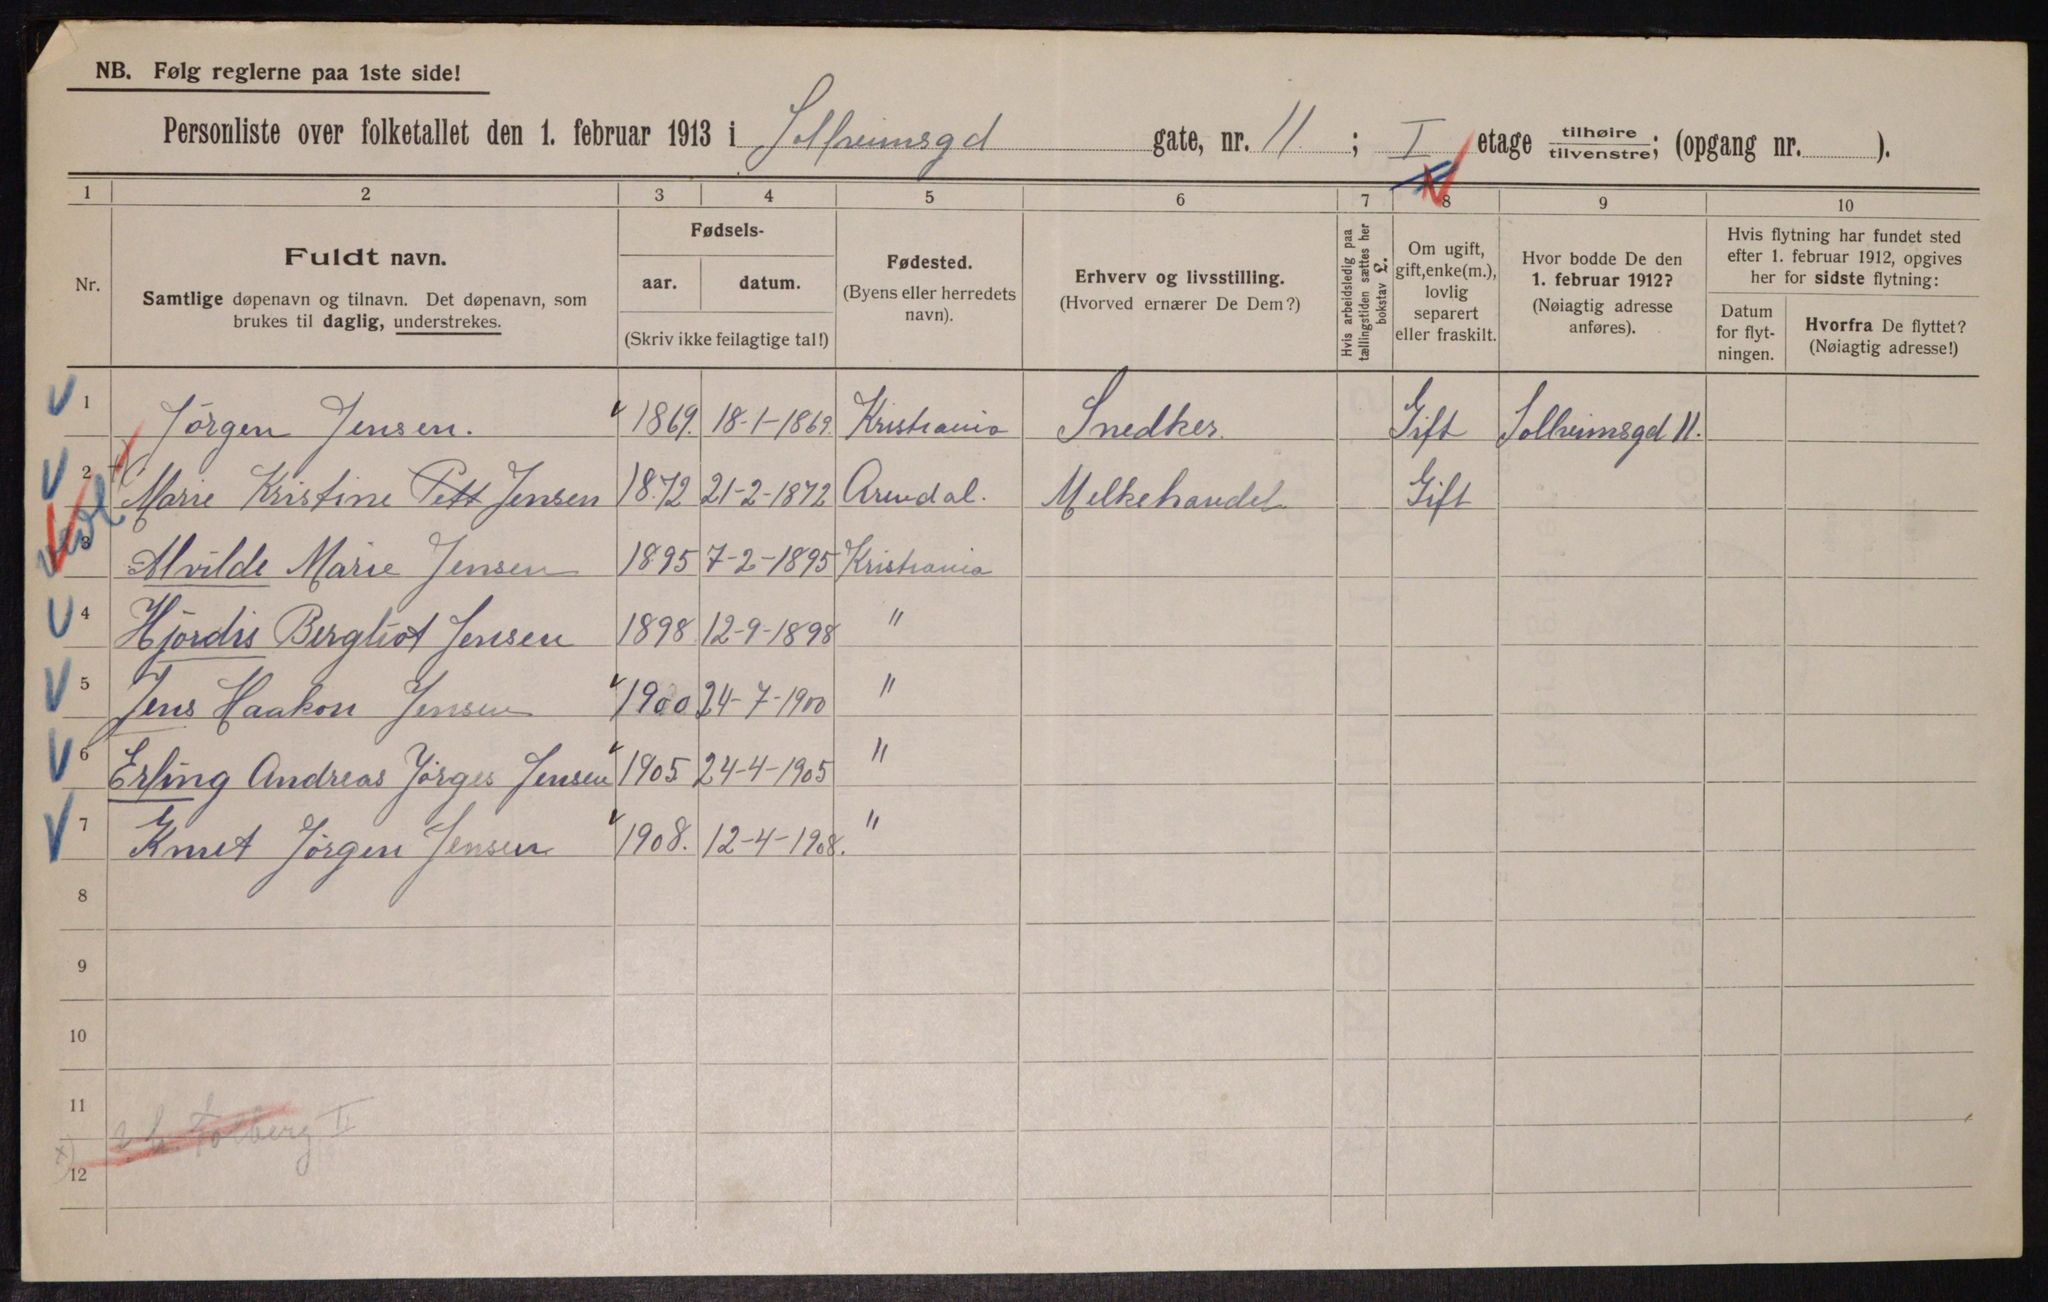 NB. Følg reglerne paa 1ste side!
Personliste over folketallet den 1. februar 1913 i Solheimsgd gate, nr. 11 ; I etage tilhøire/tilvenstre; (opgang nr. ).
1 2 3 4 5 6 7 8 9 10
Nr.
Fuldt navn.
Samtlige døpenavn og tilnavn. Det døpenavn, som
brukes til daglig, understrekes.
Fødsels-
aar. datum.
(Skriv ikke feilagtige tal!)
Fødested.
(Byens eller herredets
navn).
Erhverv og livsstilling.
(Hvorved ernærer De Dem?)
Hvis arbeidsledig paa
tællingstiden sættes her
bokstav L.
Om ugift,
gift, enke(m.),
lovlig
separert
eller fraskilt.
Hvor bodde De den
1. februar 1912?
(Nøiagtig adresse
anføres).
Hvis flytning har fundet sted
efter 1. februar 1912, opgives
her for sidste flytning:
Datum
for flyt-
ningen.
Hvorfra De flyttet?
(Nøiagtig adresse!)
1 Jørgen Jensen. 1869. 18-1-1869. Kristiania Snedker. Gift Solheimsgd 11.
2 Marie Kristine Jensen 1872 21-2-1872 Arendal. Melkehandel Gift
3 Alvilde Marie Jensen 1895 7-2-1895 Kristiania
4 Hjørdis Bergliot Jensen 1898 12-9-1898 "
5 Jens Haakon Jensen 1900 24-7-1900 "
6 Erling Andreas Jørges Jensen 1905 24-4-1905 "
7 Knut Jørgen Jensen 1908. 12-4-1908. "
8
9
10
11
12